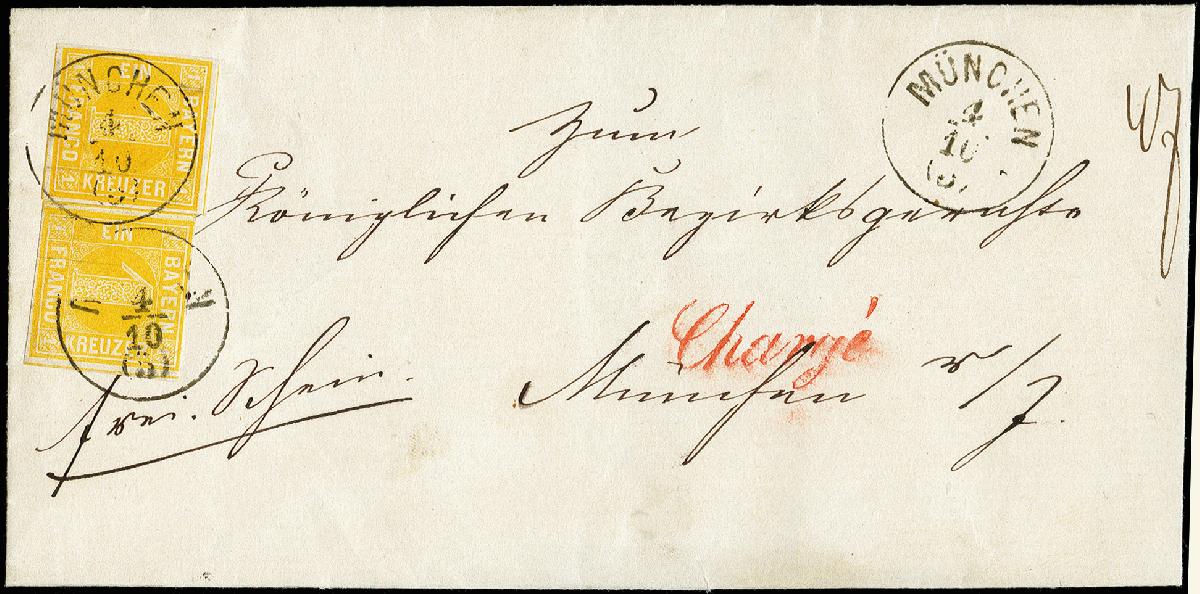 EIN
BAYERN
FRANCO
KREUZER
1 1
MÜNCHEN
4
10
(5)
EIN
BAYERN
FRANCO
KREUZER
4
10
(5)
MÜNCHEN
4
10
(5)
Zum
Königlichen Bezirksgerichte
Chargé
München
frei. Schein.